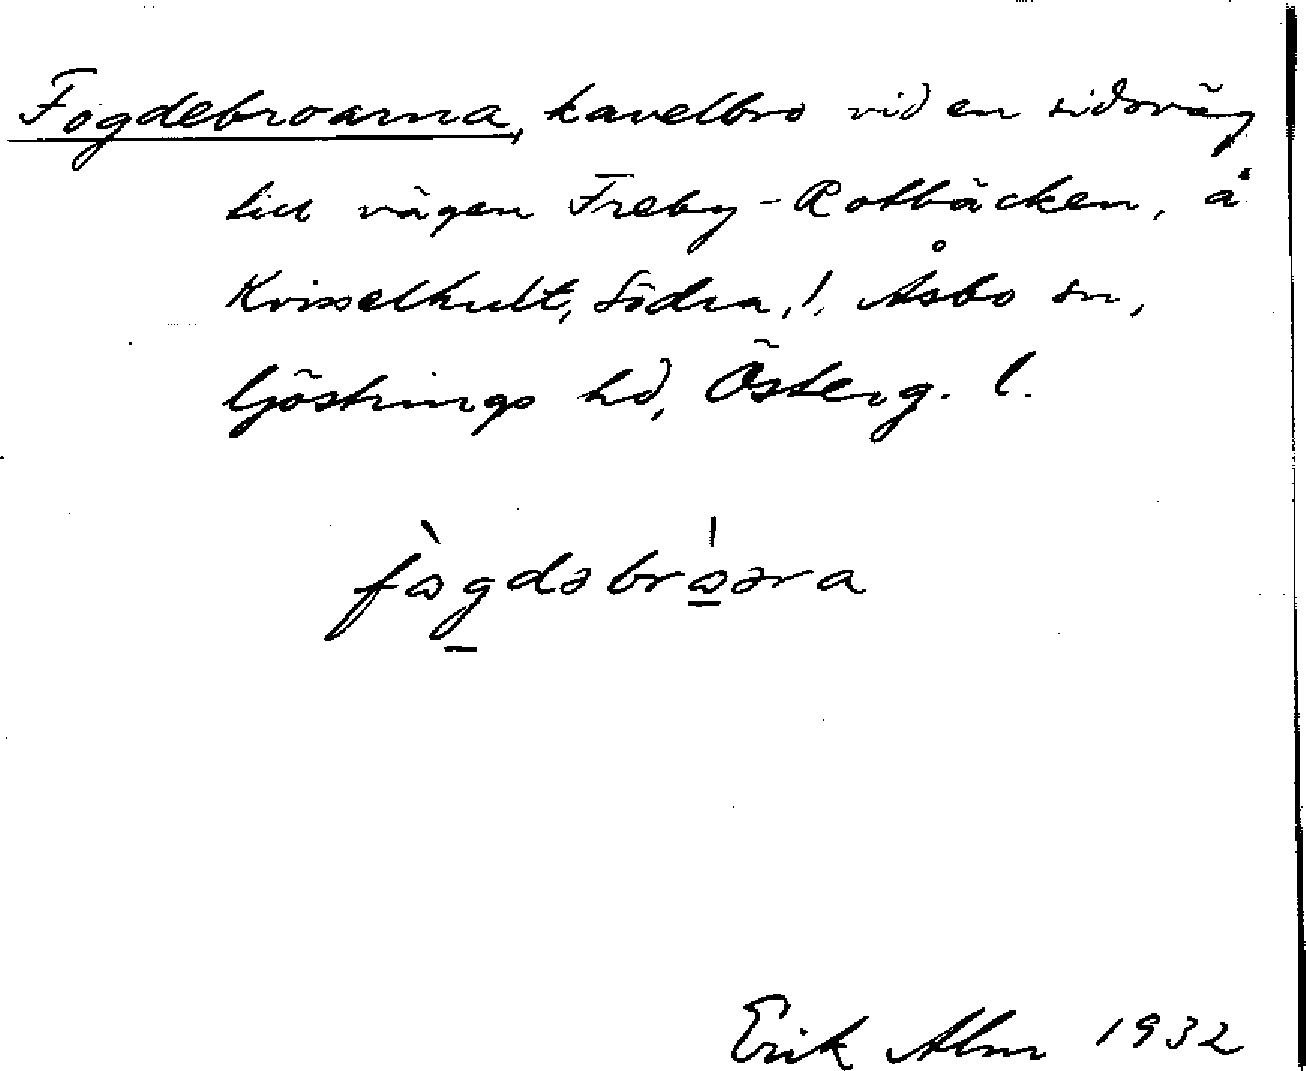 Fogdebroarna, kavelbro vid en sidoväg
till vägen Freby-Rotbäcken, å
Kvisselhult, Södra, !, Åsbo sn,
Göstrings hd, Österg. l.
fògdəbròəra
Erik Alm 1932